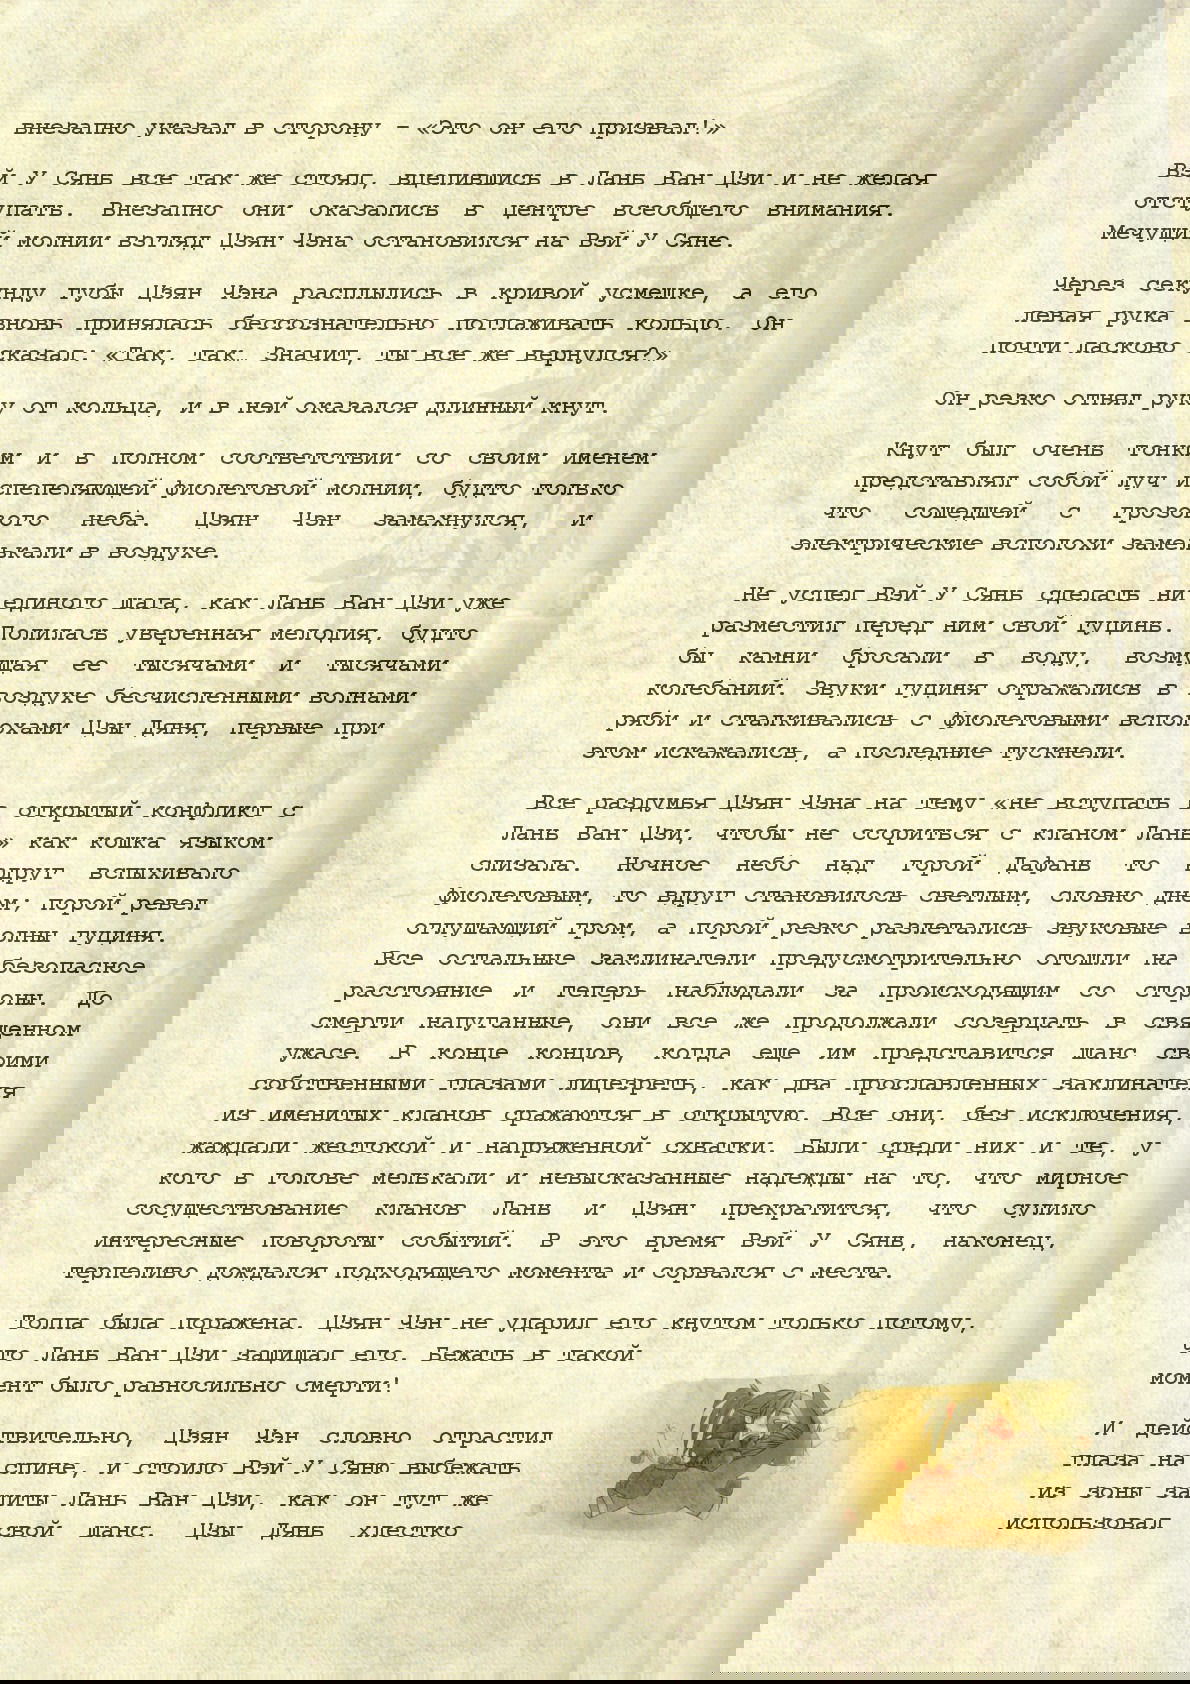 внезапно указал в сторону – «Это он его призвал!»
Вэй У Сянь все так же стоял, вцепившись в Лань Ван Цзи и не желая
отступать. Внезапно они оказались в центре всеобщего внимания.
Мечущий молнии взгляд Цзян Чэна остановился на Вэй У Сяне.
Через секунду губы Цзян Чэна расплылись в кривой усмешке, а его
левая рука вновь принялась бессознательно поглаживать кольцо. Он
почти ласково сказал: «Так, так. Значит, ты все же вернулся?»
Он резко отнял руку от кольца, и в ней оказался длинный кнут.
Кнут был очень тонким и в полном соответствии со своим именем
представлял собой луч испепеляющей фиолетовой молнии, будто только
что сошедшей с грозового неба. Цзян Чэн замахнулся, и
электрические всполохи замелькали в воздухе.
Не успел Вэй У Сянь сделать ни единого шага, как Лань Ван Цзи уже
разместил перед ним свой гуцинь. Полилась уверенная мелодия, будто
бы камни бросали в воду, возмущая ее тысячами и тысячами
колебаний. Звуки гуциня отражались в воздухе бесчисленными волнами
ряби и сталкивались с фиолетовыми всполохами Цзы Дяня, первые при
этом искажались, а последние тускнели.
Все раздумья Цзян Чэна на тему «не вступать в открытый конфликт с
Лань Ван Цзи, чтобы не ссориться с кланом Лань» как кошка языком
слизала. Ночное небо над горой Дафань то вдруг вспыхивало
фиолетовым, то вдруг становилось светлым, словно днем; порой ревел
оглушающий гром, а порой резко разлетались звуковые волны гуциня.
Все остальные заклинатели предусмотрительно отошли на безопасное
расстояние и теперь наблюдали за происходящим со стороны. До
смерти напуганные, они все же продолжали созерцать в священном
ужасе. В конце концов, когда еще им представится шанс своими
собственными глазами лицезреть, как два прославленных заклинателя
из именитых кланов сражаются в открытую. Все они, без исключения,
жаждали жестокой и напряженной схватки. Были среди них и те, у
кого в голове мелькали и невысказанные надежды на то, что мирное
сосуществование кланов Лань и Цзян прекратится, что сулило
интересные повороты событий. В это время Вэй У Сянь, наконец,
терпеливо дождался подходящего момента и сорвался с места.
Толпа была поражена. Цзян Чэн не ударил его кнутом только потому,
что Лань Ван Цзи защищал его. Бежать в такой
момент было равносильно смерти!
И действительно, Цзян Чэн словно отрастил
глаза на спине, и стоило Вэй У Сяню выбежать
из зоны защиты Лань Ван Цзи, как он тут же
использовал свой шанс. Цзы Дянь хлестко